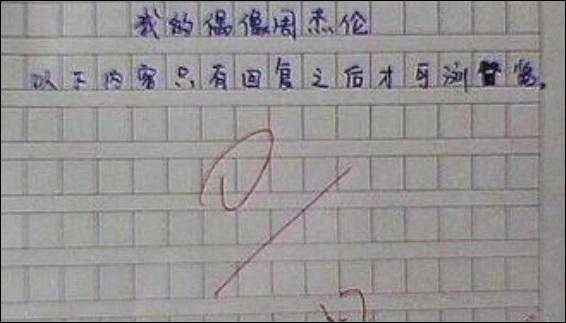 我的偶像周杰伦
以下内容只有回复之后才可浏